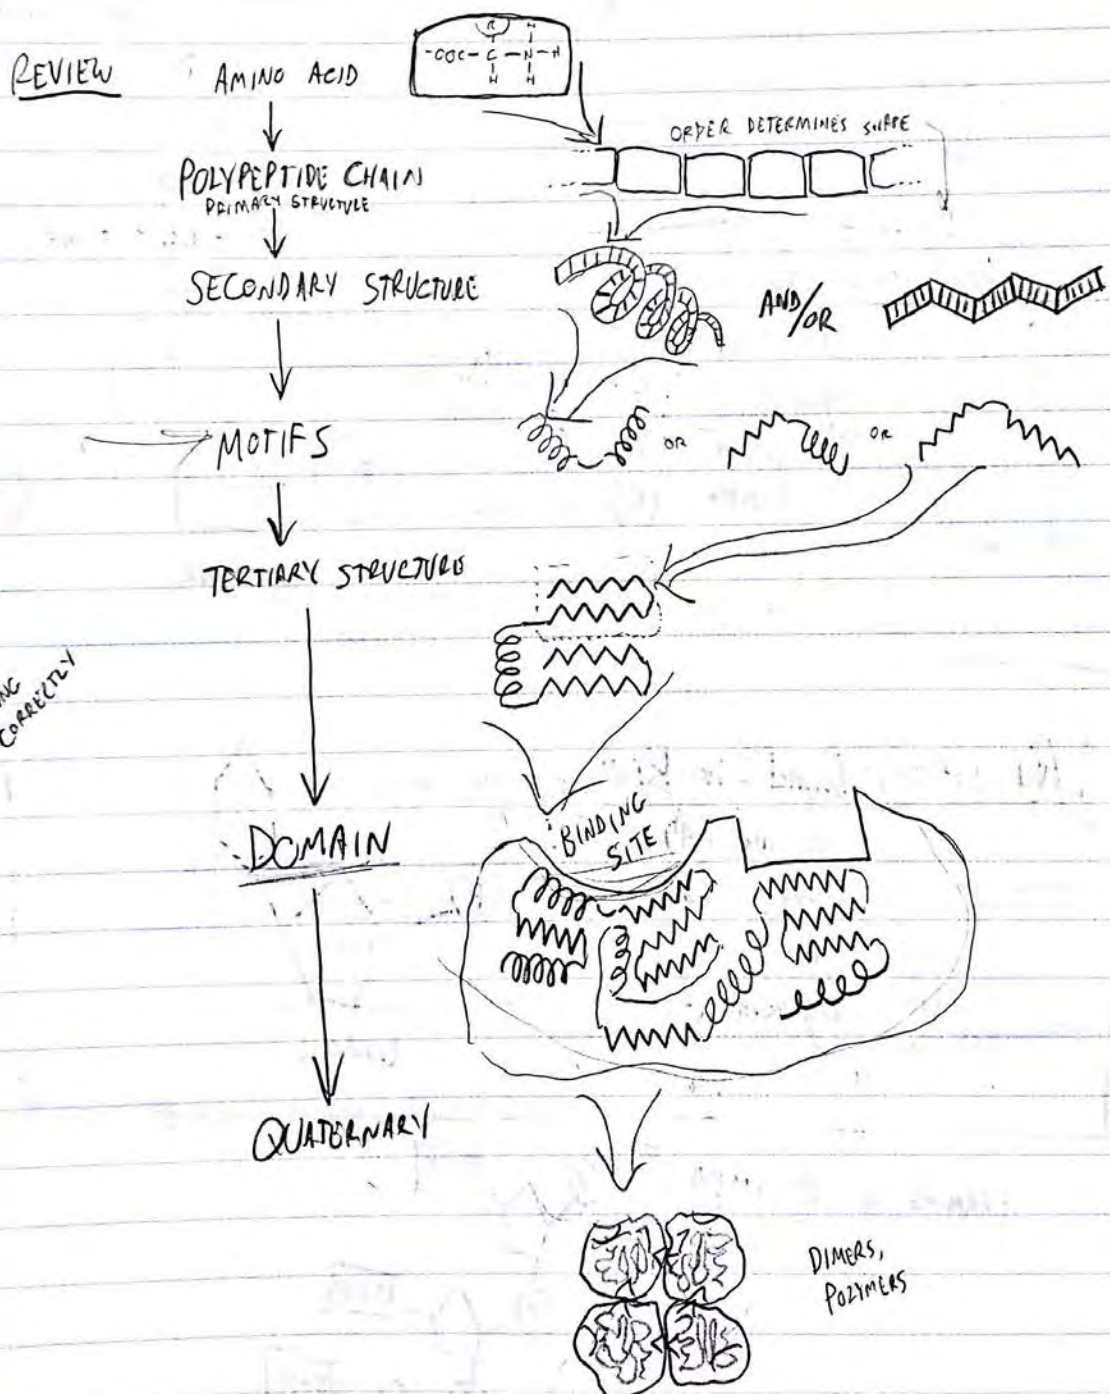 REVIEW
AMINO ACID
R H
-COC-C-N-H
H H
ORDER DETERMINES SHAPE
POLYPEPTIDE CHAIN
PRIMARY STRUCTURE
SECONDARY STRUCTURE
AND/OR
MOTIFS
OR
OR
TERTIARY STRUCTURE
CORRECTLY
BINDING
SITE
DOMAIN
QUATERNARY
DIMERS,
POLYMERS